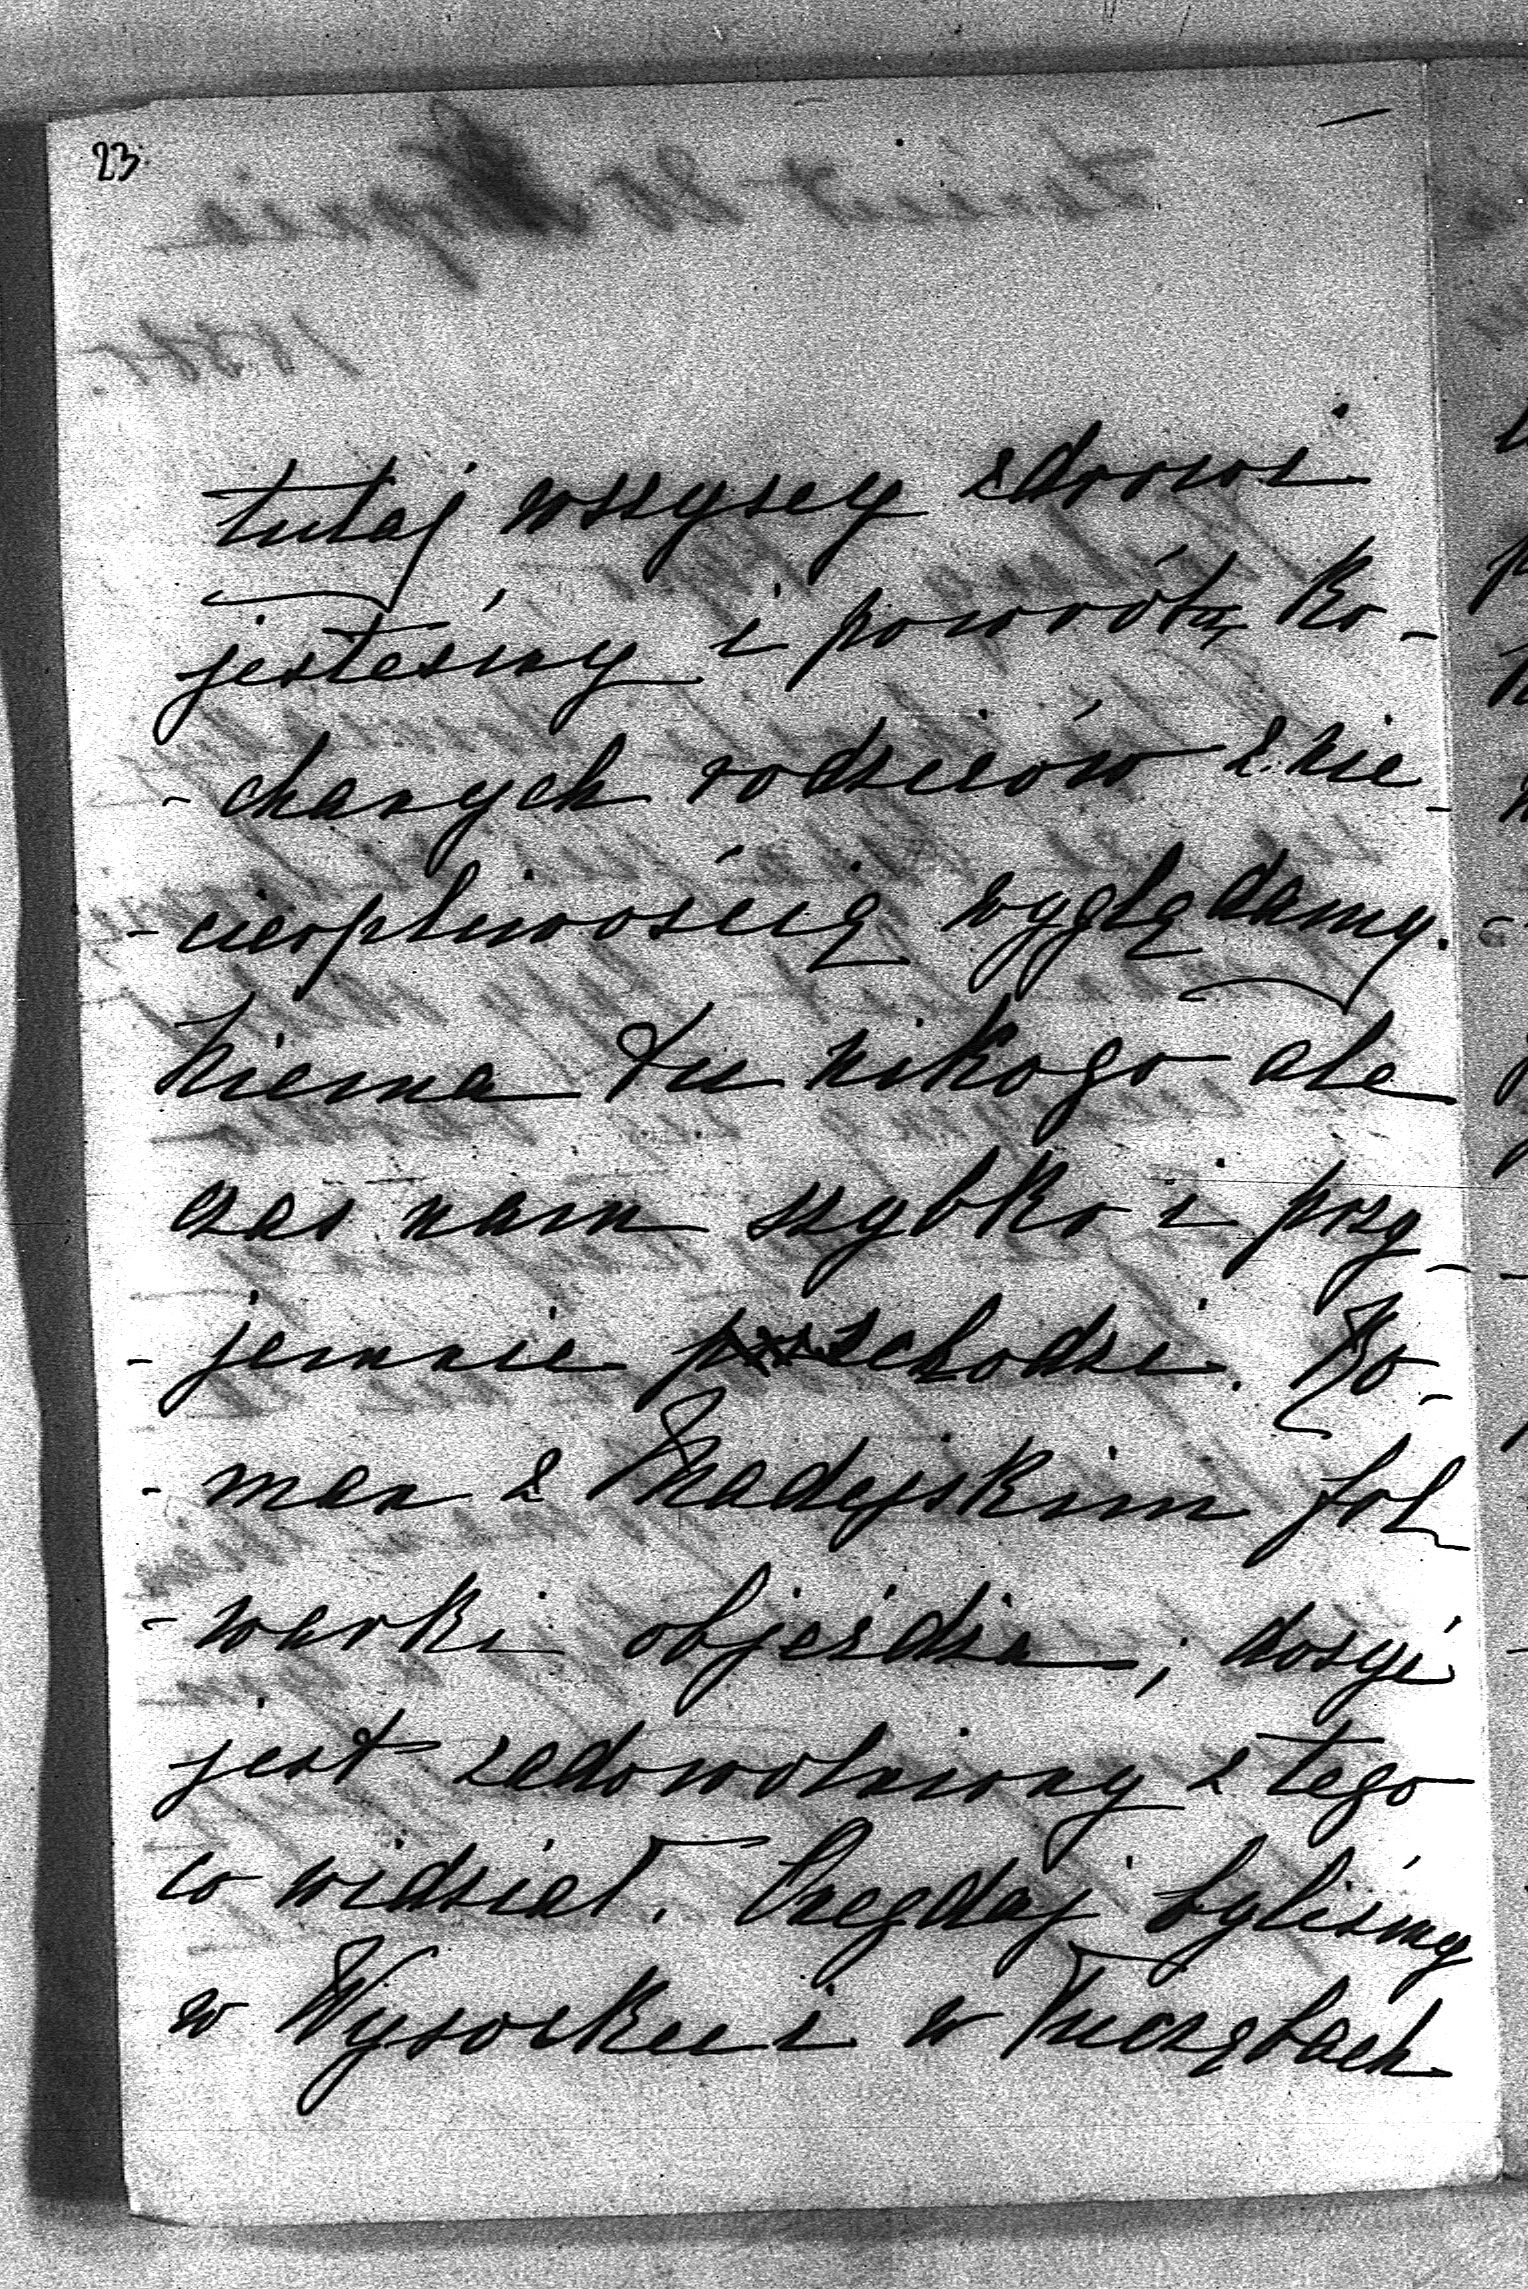 23
tutaj wszyscy zdrowi
jesteśmy i powrótu ko-
-chanych rodziców z nie-
-cierpliwością wyglądamy.
Niema tu nikogo ale
czas nam szybko i przy-
-jemnie przechodzi. Ro-
-man z Madejskim fol-
-warki objeżdża, dosyć
jest zadowolniony z tego
co widział. Onegdaj byliśmy
w Wysocku i w Tuczębach